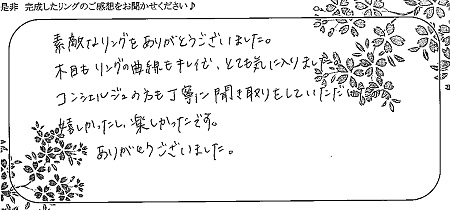 是非 完成したリングのご感想をお聞かせください♪
素敵なリングをありがとうございました。
木目もリングの曲線もキレイで、とても気に入りました
コンシェルジュの方も丁寧に聞き取りをしていただい
嬉しかったし、楽しかったです。
ありがとうございました。